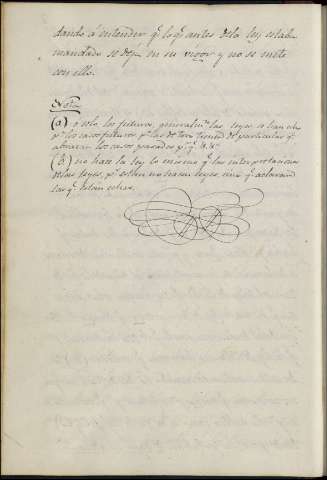 dando á entender q.e lo q.e antes dela ley estaba
mandado se deja en su vigor y no se mete
con ello.
Nota
(a) ó solo los futuros, generalm.te las leyes se han
p.a los casos futuros p.o las de tienen de particular q.e
abrazan los casos pasados p.r q.e
(b) no hace la ley lo mismo q.e las interpretaciones
delas leyes, p.s estas no hacen leyes, sino q.e aclaran
las q.e estan echas.